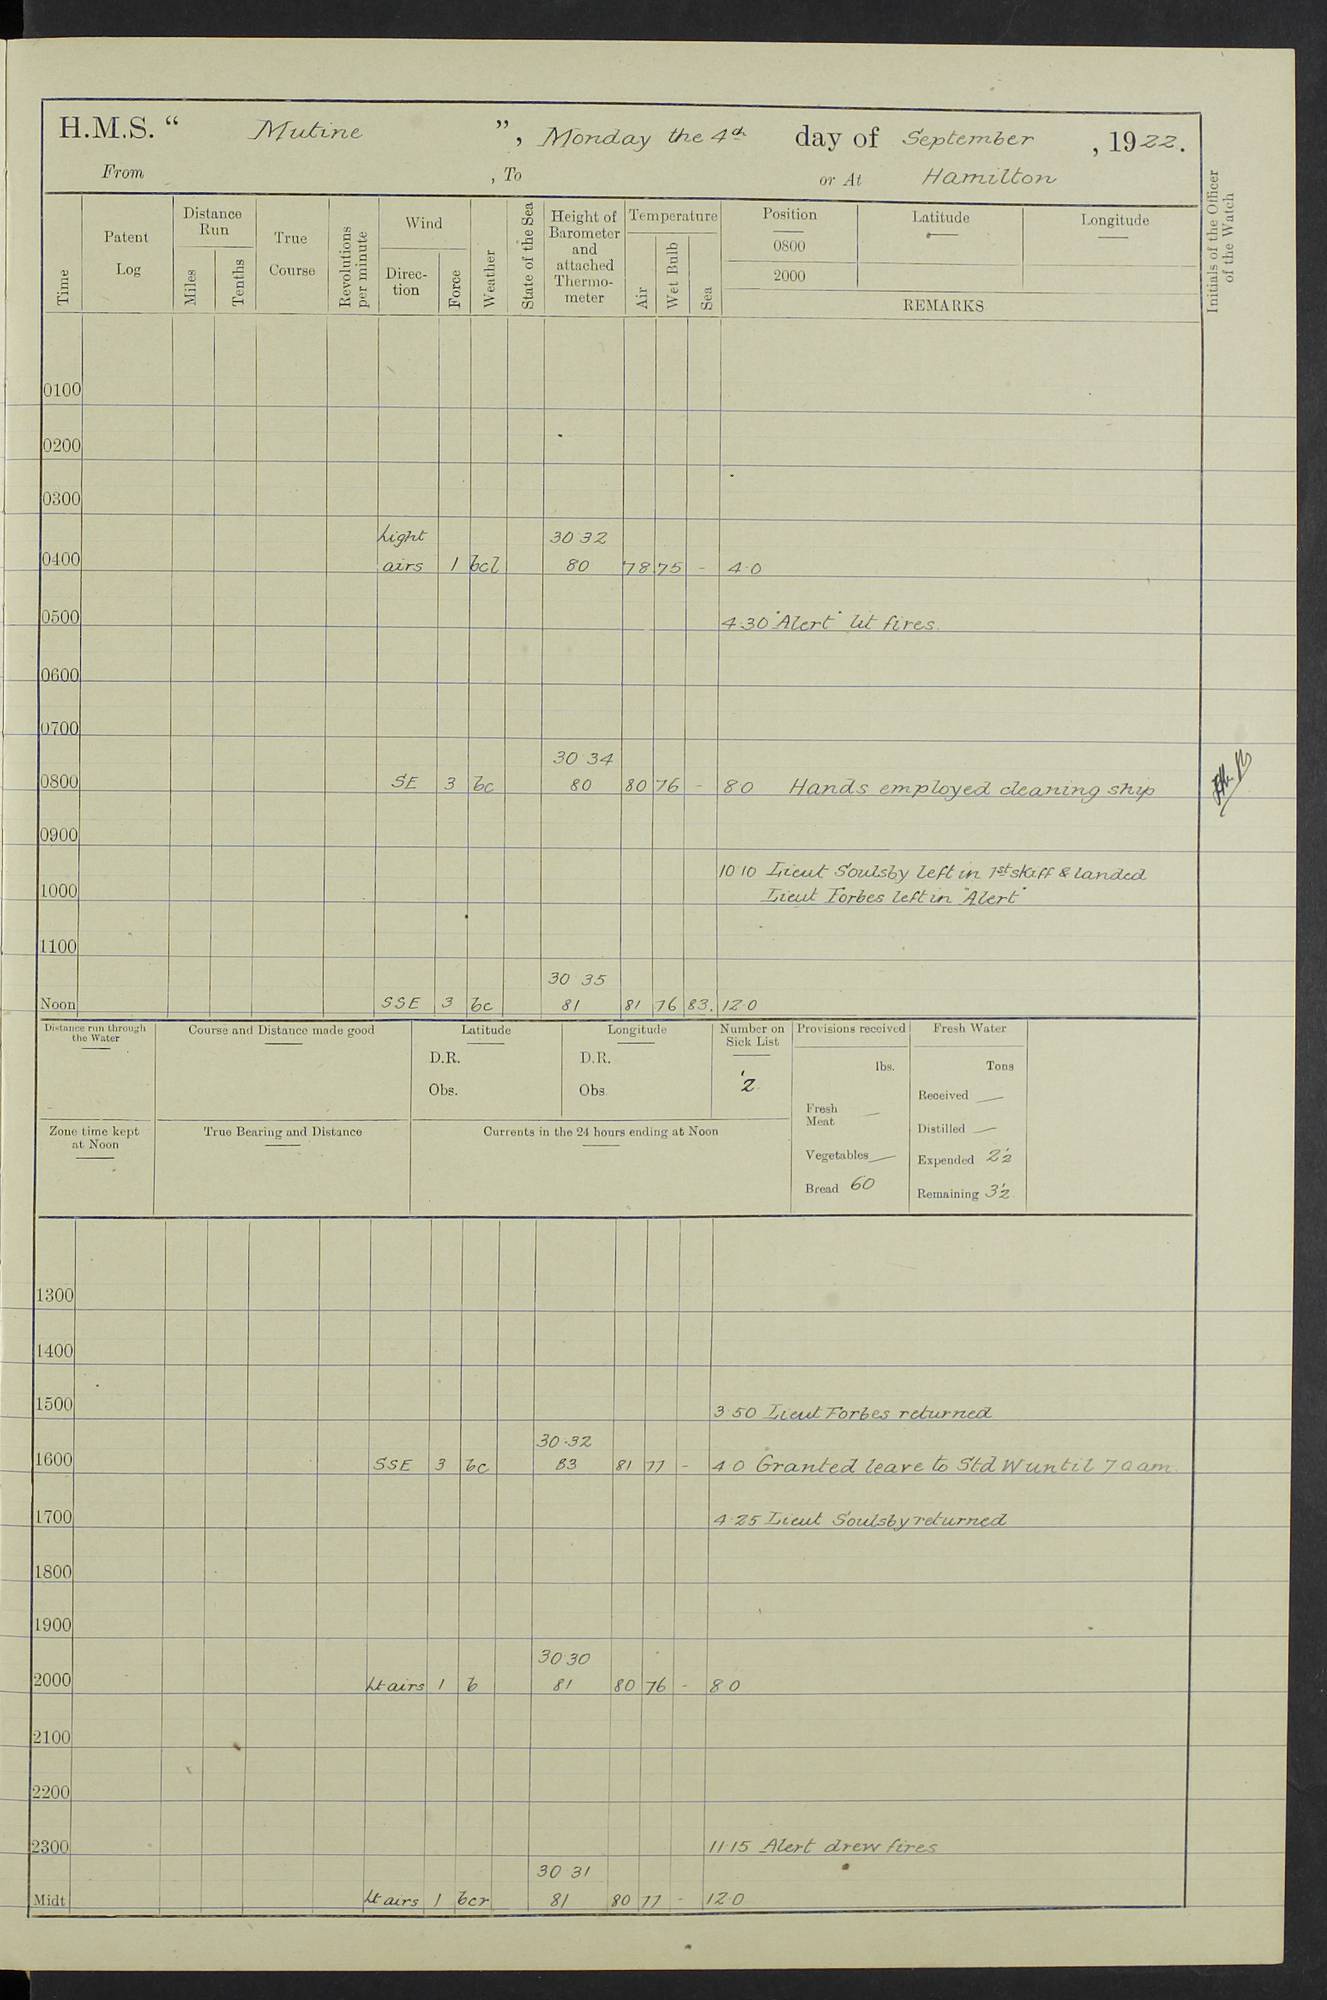 H.M.S. “ Mutine ”, Monday the 4th day of September , 1922.
From , To or At Hamilton
Time
Patent Log
Distance Run
Miles
Tenths
True Course
Revolutions per minute
Wind
Direction
Force
Weather
State of the Sea
Height of Barometer and attached Thermometer
Temperature
Air
Wet Bulb
Sea
Position
Latitude
Longitude
0800
2000
REMARKS
Initials of the Officer of the Watch
0100
0200
0300
Light 30 32
0400 airs 1 bcl 80 78 75 - 4.0
0500 4.30 "Alert" lit fires.
0600
0700
30 34
0800 SE 3 bc 80 80 76 - 8.0 Hands employed cleaning ship
0900
10 10 Lieut Soulsby left in 1st skiff & landed
1000 Lieut Forbes left in "Alert"
1100
30 35
Noon SSE 3 bc 81 81 76 83. 12.0
Distance run through the Water
Course and Distance made good
Latitude
D.R.
Obs.
Longitude
D.R.
Obs.
Number on Sick List
2
Provisions received
lbs.
Fresh Meat —
Vegetables —
Bread 60
Fresh Water
Tons
Received —
Distilled —
Expended 2½
Remaining 3½
Zone time kept at Noon
True Bearing and Distance
Currents in the 24 hours ending at Noon
1300
1400
1500 3.50 Lieut Forbes returned
30.32
1600 SSE 3 bc 83 81 77 - 4.0 Granted leave to Std W until 7.0 am.
1700 4.25 Lieut Soulsby returned
1800
1900
30.30
2000 Lt airs 1 b 81 80 76 - 8.0
2100
2200
2300 11.15 Alert drew fires
30 31
Midt Lt airs 1 bcr 81 80 77 - 12.0